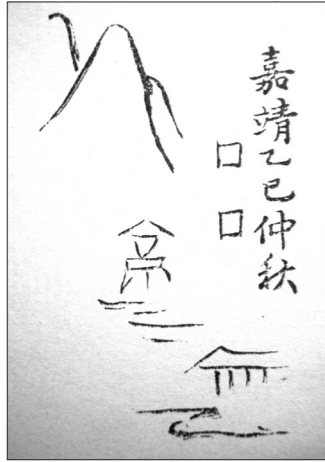 嘉靖乙巳仲秋
口
口